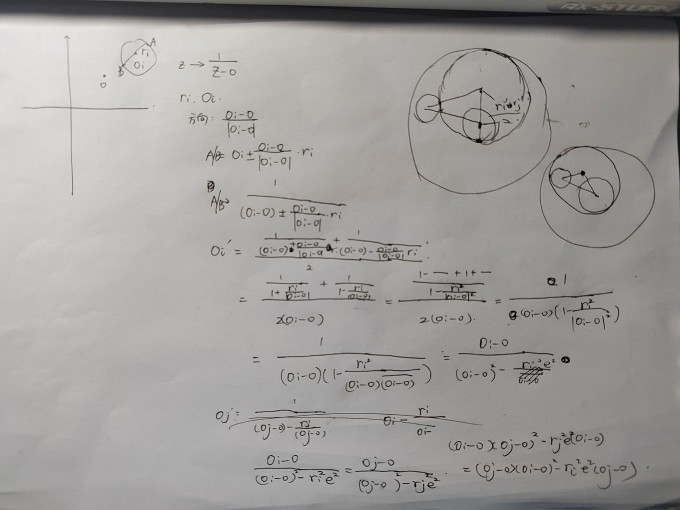 A
ri
B
Oi
o
z → 1/(z-o)
ri. Oi.
方向: (Oi-o)/|Oi-o|
A/B= Oi ± (Oi-o)/|Oi-o| · ri
A/B→ 1/((Oi-o) ± (Oi-o)/|Oi-o| · ri)
Oi' = (1/((Oi-o) + (Oi-o)/|Oi-o| · ri) + 1/((Oi-o) - (Oi-o)/|Oi-o| ri))/2
= (1/(1+ri/|Oi-o|) + 1/(1-ri/|Oi-o|))/(2(Oi-o)) = ((1-—+1+—)/(1-ri²/|Oi-o|²))/(2(Oi-o)) = 1/((Oi-o)(1-ri²/|Oi-o|²))
= 1/((Oi-o)(1-ri²/((Oi-o)(Oi-o)))) = (Oi-o)/((Oi-o)²-ri²e²)
Oj' =
(Oi-o)/((Oi-o)²-ri²e²) = (Oj-o)/((Oj-o)²-rj²e²)
(Oi-o)(Oj-o)²-rj²e²(Oi-o)
=(Oj-o)(Oi-o)²-ri²e²(Oj-o).